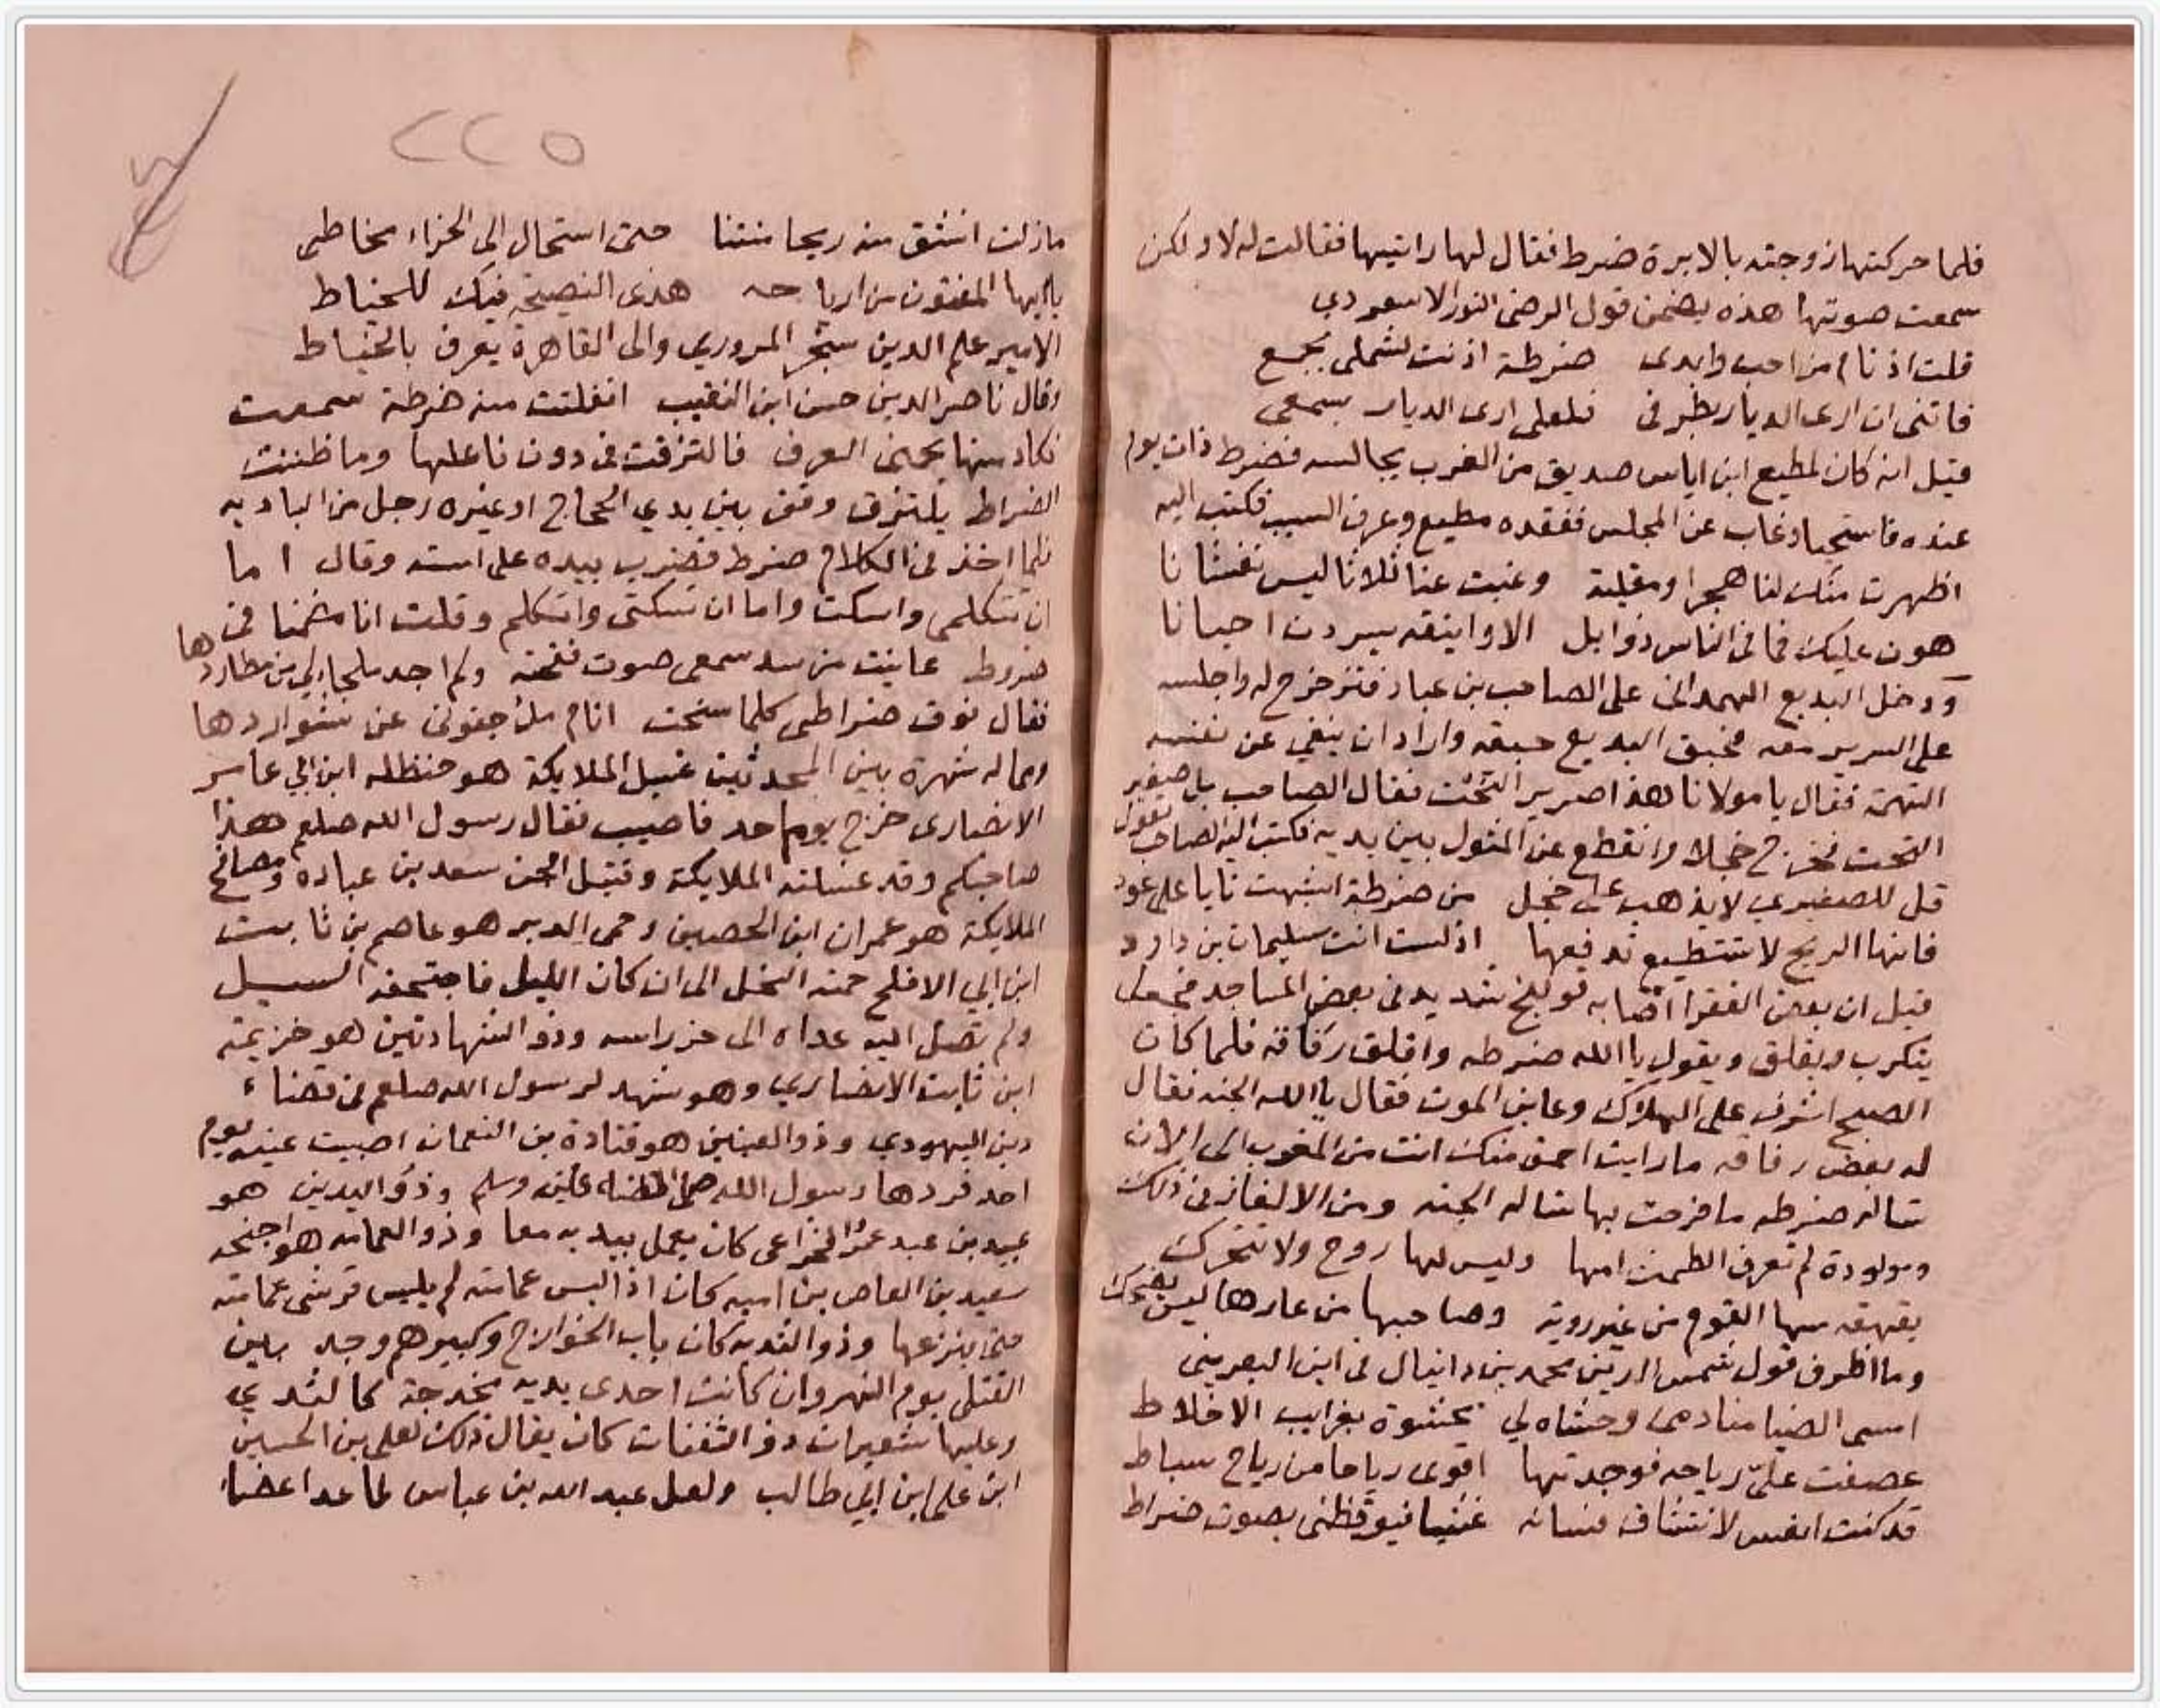 فلما حركتها زوجته بالابرة ضرط فقال لها راتيها فقالت له لا ولكن
سمعت صوتها هذه يضمن قول الرضى النور الاسعردي
قلت اذ نام من احب وابدى ضرطة اذنت لشملى بجمع
فاتنى ان ارى الديار بطرفى فلعلى ارى الديار بسمعى
قيل انه كان لمطيع ابن اياس صديق من العرب يجالسه فضرط ذات يوم
عنده فاستحيا وغاب عن المجلس ففقده مطيع وعرف السبب فكتب اليه
اظهرت منك لنا هجرا ومقلية وغبت عنا ثلاثا ليس تغشانا
هون عليك فما فى الناس ذو ابل الا واينقه يسردن احيانا
ودخل البديع الهمدانى على الصاحب بن عباد فتزحزح له واجلسه
على السرير معه فحبق البديع حبقه واراد ان ينفي عن نفسه
التهمة فقال يا مولانا هذا صرير التخت فقال الصاحب بل صفير
التحت فخرج خجلا وانقطع عن المثول بين يديه فكتب اليه الصاحب يقول
قل للصفيري لا يذهب على خجل من ضرطة اشبهت نايا على عود
فانها الريح لا تستطيع تدفعها اذ لست انت سليمان بن داود
قيل ان بعض الفقرا اصابه قولنج شديد فى بعض المساجد فجعل
يتكرب ويقلق ويقول يا الله ضرطه واقلق رفاقه فلما كان
الصبح اشرف على الهلاك وعاين الموت فقال يا الله الجنه فقال
له بعض رفاقه ما رايت احمق منك انت من المغرب الى الان
تساله ضرطه ما فرحت بها تساله الجنه ومن الالغاز فى ذلك
ومولودة لم تعرف الطمث امها وليس لها روح ولا تتحرك
يقهقه منها القوم من غير روية وصاحبها من عارها ليس يضحك
وما اظرف قول شمس الدين محمد بن دانيال فى ابن البعرينى
امسى الضيا منادمى وحشاه لي محشوة بغرايب الاخلاط
عصفت علىّ رياحه فوجدتها اقوى رياحا من رياح سباط
قد كنت انفس لانتشاق فسائه غشيا فيوقظنى بصوت ضراط
٢٢٥
مازلت انشق منه ريحا منتنا حتى استحال الى الخراء مخاطى
يا ايها المفتون من ارياحه هذى النصيحة فيك للخياط
الامير علم الدين سنجر المروري والى القاهرة يعرف بالخياط
وقال ناصر الدين حسن ابن النقيب انفلتت منه ضرطة سمعت
فكاد منها يجنى العرف فالتزقت فى دون فاعلها وما ظننت
الضراط يلتزق وقف بين يدي الحجاج او غيره رجل من الباديه
فلما اخذ فى الكلام ضرط فضرب بيده على استه وقال اما
ان تتكلمى واسكت واما ان تسكتى واتكلم وقلت انا مضمنا فى
ضروط عاينت من سد سمعى صوت نفخته ولم اجد ملجا لي من مطاردها
فقال نوف ضراطى كلما سنحت انام ملء جفونى عن شواردها
ومما له شهرة بين المحدثين غسيل الملايكة هو حنظله ابن ابي عامر
الانصارى خرج يوم احد فاصيب فقال رسول الله صلعم هذا
صاحبكم وقد غسلته الملايكة وقتيل الجن سعد بن عباده ومصافح
الملايكة هو عمران ابن الحصين وحمى الدبر هو عاصم بن ثابت
ابن ابي الافلح حمته النحل الى ان كان الليل فاجتحفه السيل
ولم تصل اليه عداه الى حز راسه وذو الشهادتين هو خزيمة
ابن ثابت الانصاري وهو شهد لرسول الله صلعم فى قضاء
دين اليهودي وذو العينين هو قتادة بن النعمان اصيبت عينه يوم
احد فردها رسول الله صلى الله عليه وسلم وذو اليدين هو
عبيد بن عبد عمرو الخزاعى كان يعمل بيديه معا وذو العمامه هو اجنحه
سعيد بن العاص بن اميه كان اذا لبس عمامته لم يلبس قرشى عمامته
حتى ينزعها وذو الثديه كان باب الخوارج وكبيرهم وجد بين
القتلى يوم النهروان كانت احدى يديه مخدجة كالثدي
وعليها شعيرات ذو الثفنات كان يقال ذلك لعلى بن الحسين
ابن على ابن ابي طالب ولعل عبد الله بن عباس لما عدا عضاء